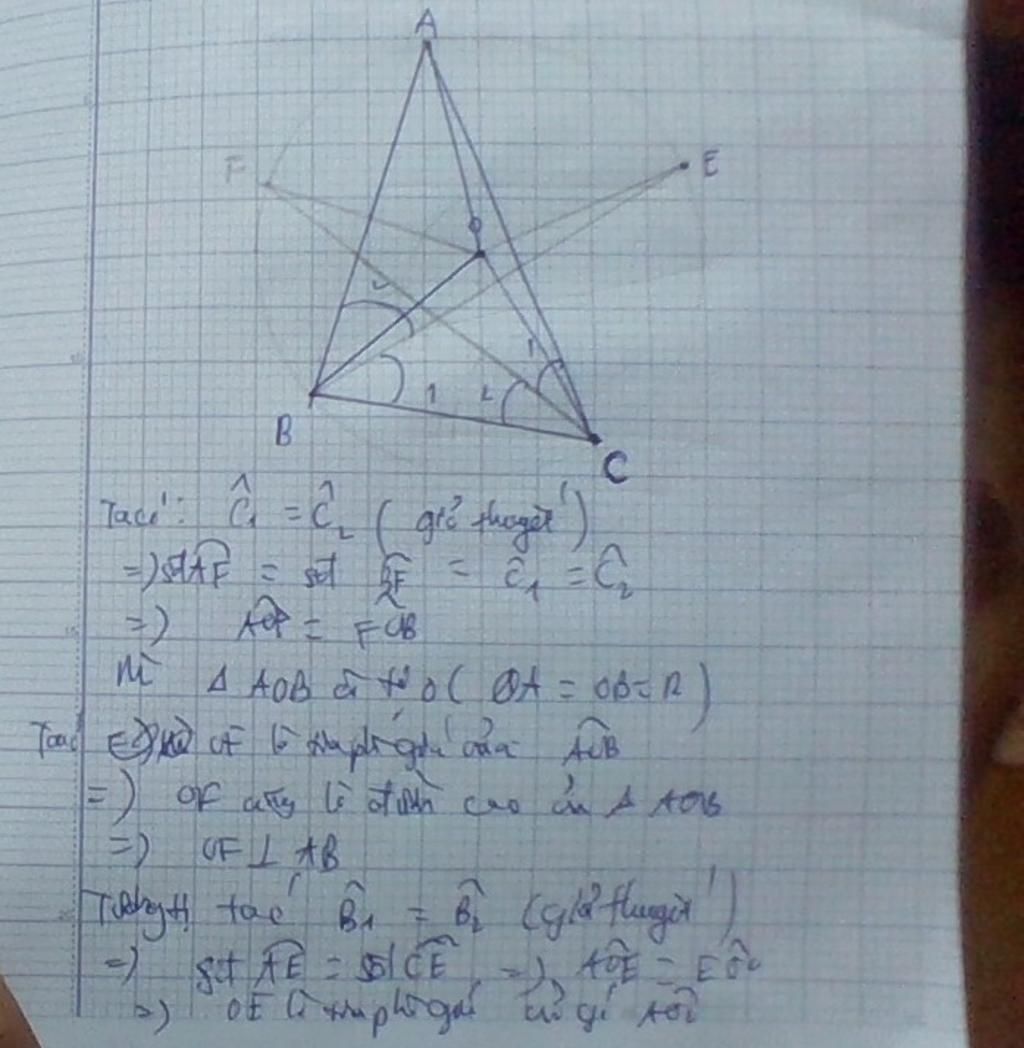 A
F
E
O
2
1
1
2
B
C
Ta có: Ĉ₁ = Ĉ₂ (giả thuyết)
=) sđ AF = sđ BF = Ĉ₁ = Ĉ₂
=) AOF = FOB
Mà Δ AOB có O ( OA = OB = R )
Ta có OF là phân giác của AOB
=) OF cũng là đường cao của Δ AOB
=) OF ⊥ AB
Tương tự ta có B̂₁ = B̂₂ (giả thuyết)
=) sđ AE = sđ CE =) AÔE = EÔC
=) OE là phân giác của góc AOC